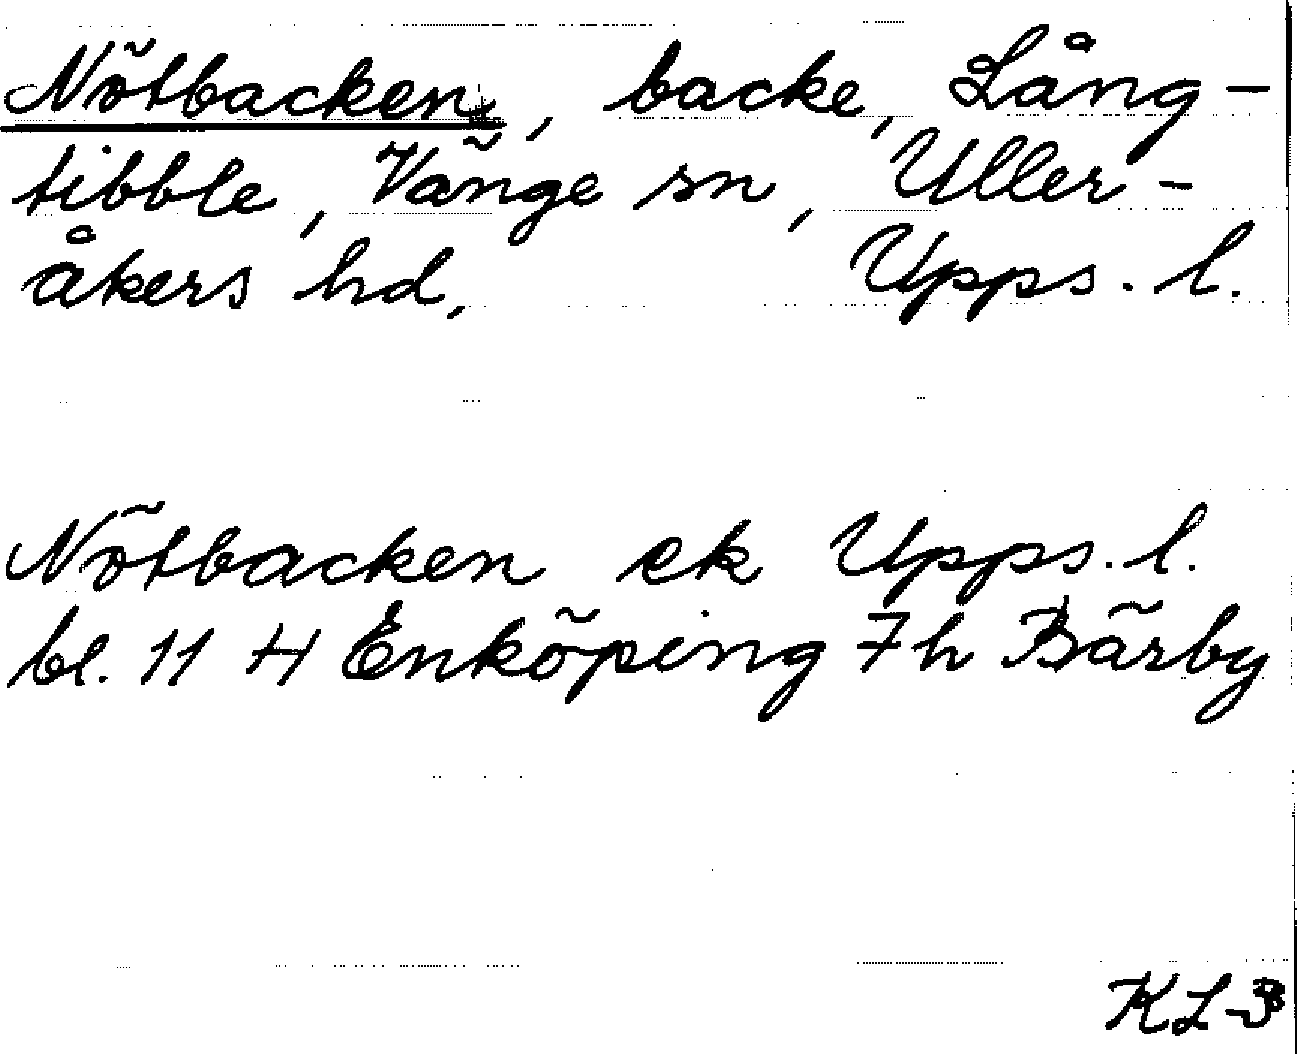 Nötbacken, backe, Lång-
tibble, Vänge sn, Uller-
åkers hd, Upps. l.
Nötbacken ek Upps. l.
bl. 11 H Enköping 7h Bärby
KL-B